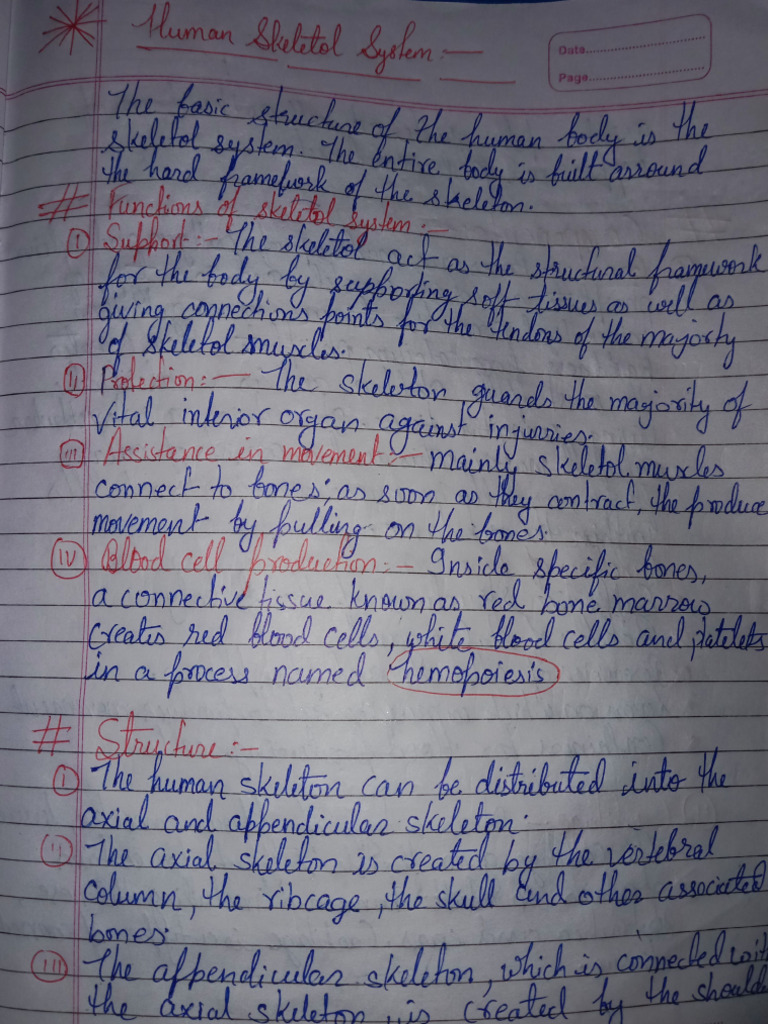 Human Skeletol System :—
Date..............................
Page..............................
The basic structure of the human body is the
skeletol system. The entire body is built arround
the hard framework of the skeleton.
# Functions of skeletol system :-
(i) Support :- The skeletol act as the structural framework
for the body by supporting soft tissues as well as
giving connections points for the tendons of the majority
of skeletol muscles.
(ii) Protection :— The skeleton guards the majority of
vital interior organ against injurries.
(iii) Assistance in movement :- mainly skeletol muscles
connect to bones; as soon as they contract, the produce
movement by pulling on the bones.
(iv) Blood cell production :- Inside specific bones,
a connective tissue known as red bone marrow
creates red blood cells, white blood cells and platelets
in a process named hemopoiesis
# Structure :-
(i) The human skeleton can be distributed into the
axial and appendicular skeleton.
(ii) The axial skeleton is created by the vertebral
column, the ribcage, the skull and other associated
bones.
(iii) The appendicular skeleton, which is connected with
the axial skeleton, is created by the shoulde